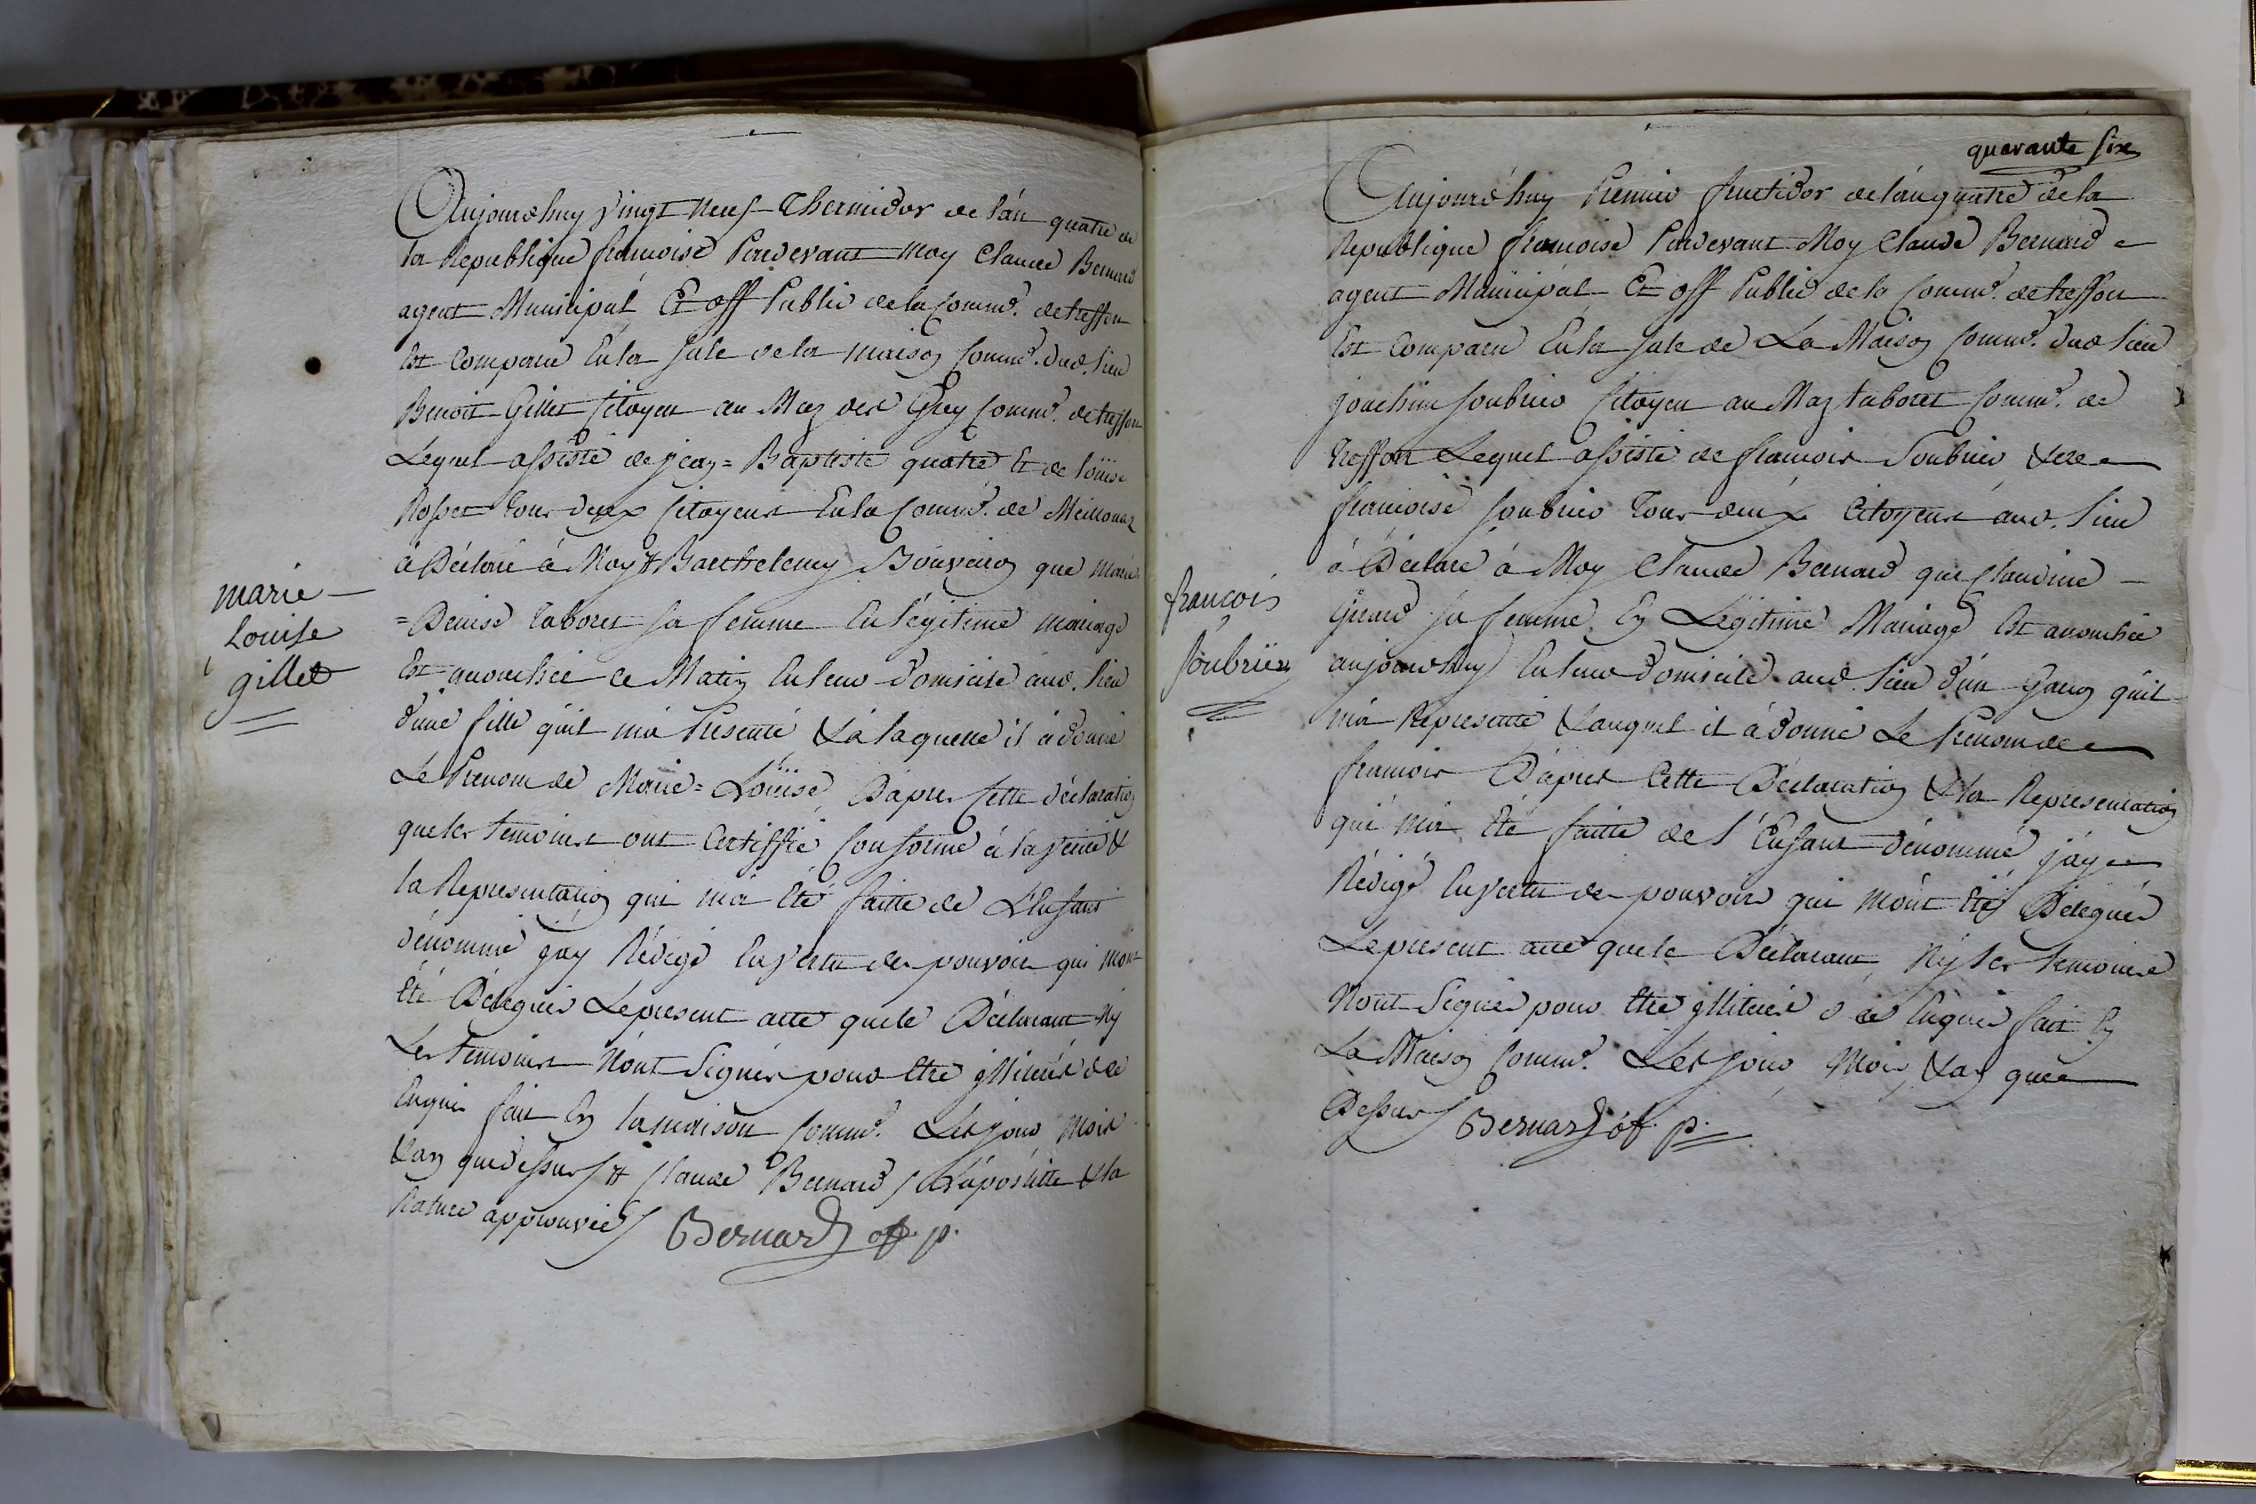 Aujourdhuy Vingt Neuf Thermidor de l'an quatre de
la Republique francoise Pardevant moy Claude Bernard
agent Municipal Et off Public de la Comm.e de treffon
Est Comparu En la Sale de la maison Comm.e dud. lieu
Benoit Gillet Citoyen au Maz des Grey Comm.e de treffon
Lequel assisté de jean = Baptiste quatre Et de Loüise
Rosset tous deux Citoyens En la Comm.e de Meillonaz
à Déclaré à Moy # Barthelemy Bouveiron que Marie
= Denise taboret sa femme En légitime mariage
Est accouchée ce Matin En leur domicile aud. lieu
d'une fille qu'il m'a Presenté & à laquelle il a donné
Le Prenom de Marie = Loüise, D'apres Cette déclaration
que les temoins ont Certiffié Conforme à la vérité &
la Representation qui m'a Eté faitte de L'Enfant
dénommé j'ay Rédigé En vertu des pouvoirs qui m'ont
Eté Délegués Le present acte que le Déclarant Ny
Les temoins N'ont Signés pour Etre jllitérés de ce
Enquis fait En la maison Comm.e Les jour Mois
& an que dessus # Claude Bernard / L'apostille & la
Rature approuvée Bernard off. p.
marie
Louise
gillet
quarante six
Aujourd'huy Premier fructidor de l'an quatre de la
Republique francoise Pardevant Moy Claude Bernard
agent Municipal Et off Public de la Comm.e de treffon
Est Comparu En la Sale de La Maison Comm.e dud. lieu
joachim Soubrier Citoyen au Maz taboret Comm.e de
treffon Lequel assisté de francois Soubrier & de
francoise Soubrier tous deux Citoyens aud. lieu
à Déclaré à Moy Claude Bernard que Claudine
Girard sa femme En Légitime Mariage Est accouchée
aujourdhuy En leur domicile aud. lieu d'un Garçon qu'il
m'a Representé & auquel il à donné Le Prenom de
francois D'apres Cette Déclaration & la Representation
qui m'a Eté faitte de l'Enfant dénommé j'ay
Rédigé En vertu des pouvoirs qui m'ont Eté Délegués
Le present acte que le Déclarant, Ny les temoins
N'ont Signés pour Etre jllitérés de ce Enquis fait En
La Maison Comm.e Les jour, Mois, & an que
Dessus Bernard of. p.
françois
Soubrier